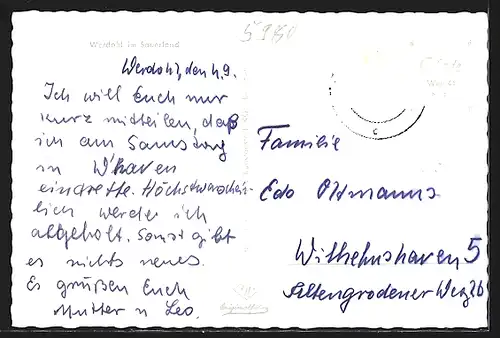 5980
Werdohl im Sauerland
Werdohl, den 4.9.
Ich will Euch nur
kurz mitteilen, daß
ich am Samstag
in W'haven
eintreffe. Höchstwarschein-
lich werde ich
abgeholt. Sonst gibt
es nichts neues.
Es grüßen Euch
Mutter u Leo.
Familie
Edo Oltmanns
Wilhelmshaven 5
Altengrodener Weg 26